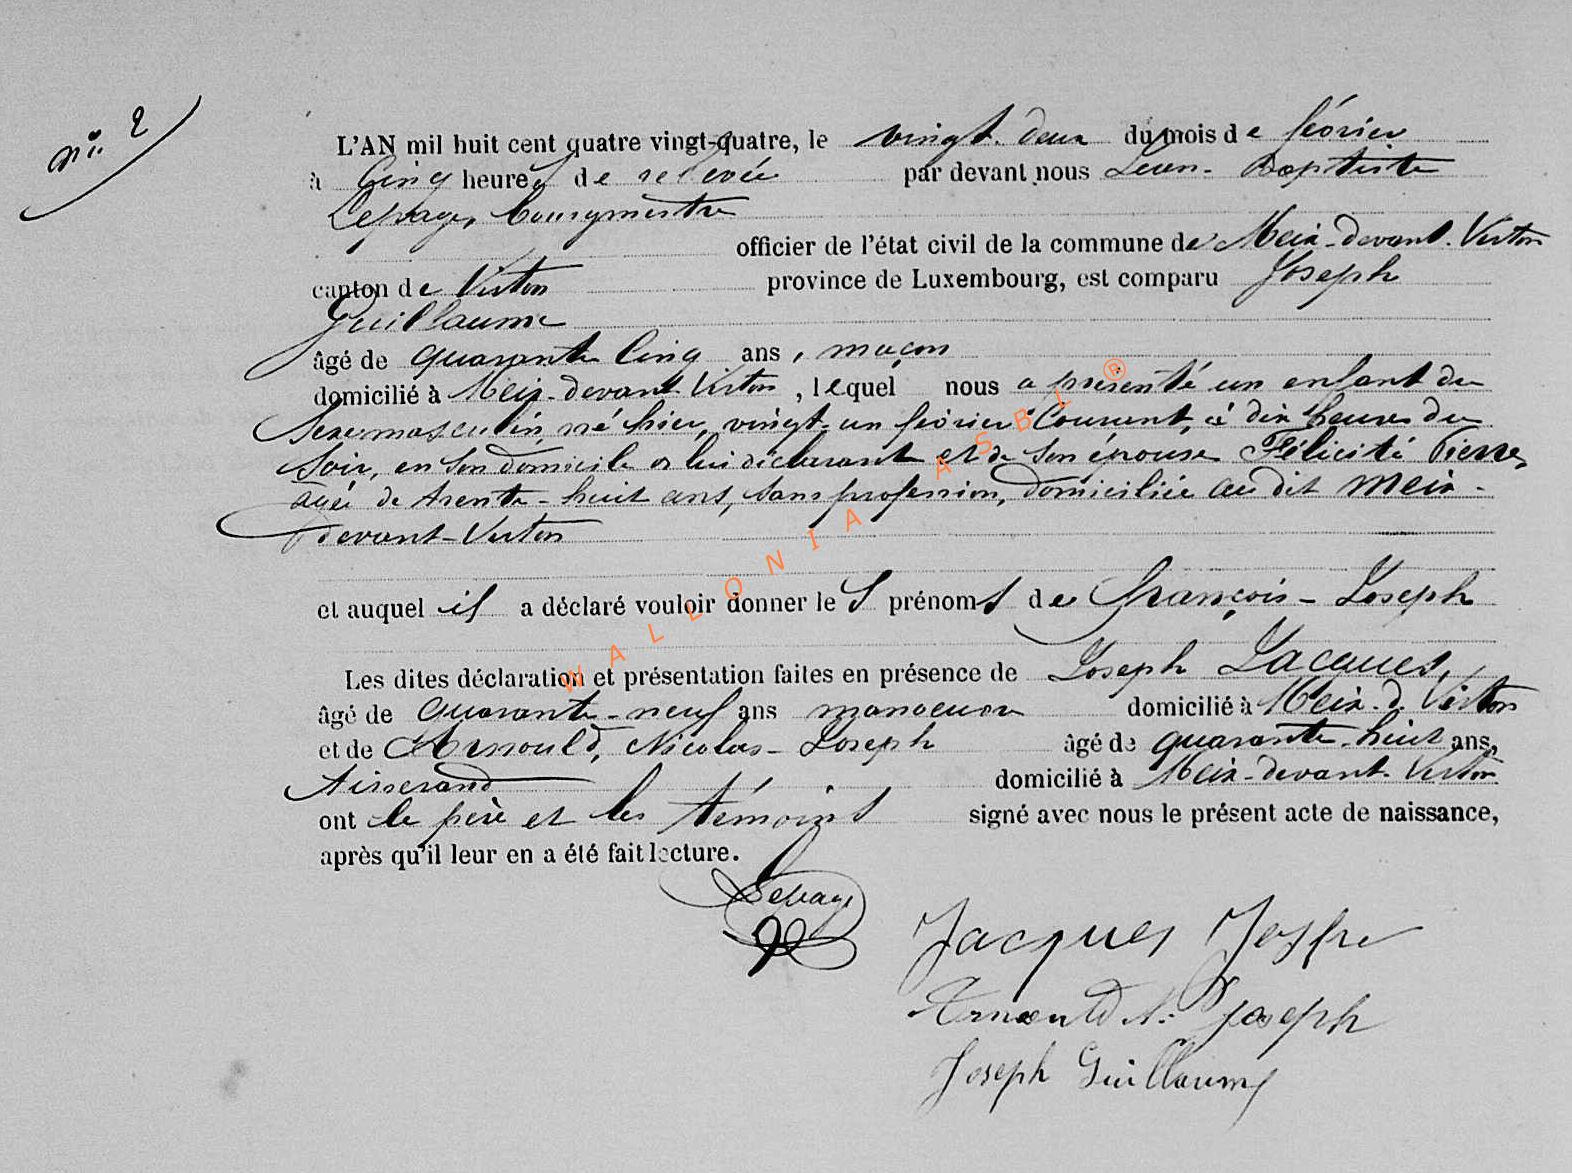 n° 2
L'AN mil huit cent quatre vingt-quatre, le vingt-deux du mois de février
à Cinq heures de relevée par devant nous Jean-Baptiste
Lepage, bourgmestre
officier de l'état civil de la commune de Meix-devant-Virton
canton de Virton province de Luxembourg, est comparu Joseph
Guillaume
âgé de quarante cinq ans, maçon
domicilié à Meix-devant-Virton, lequel nous a présenté un enfant du
Sexe masculin, né hier, vingt-un février Courant, à dix heures du
Soir, en son domicile de lui déclarant et de Son épouse Félicité Pierre,
âgée de trente-huit ans, Sans profession, domiciliée au dit Meix-
devant-Virton
et auquel il a déclaré vouloir donner les prénoms de François-Joseph
Les dites déclaration et présentation faites en présence de Joseph Jacques,
âgé de quarante-neuf ans manoeuvre domicilié à Meix-d-Virton
et de Arnould, Nicolas-Joseph âgé de quarante-huit ans,
tisserand domicilié à Meix-devant-Virton
ont le père et les témoins signé avec nous le présent acte de naissance,
après qu'il leur en a été fait lecture.
Lepage
Jacques
Arnould N. Joseph
Joseph Guillaume
WALLONIA ASBL ®